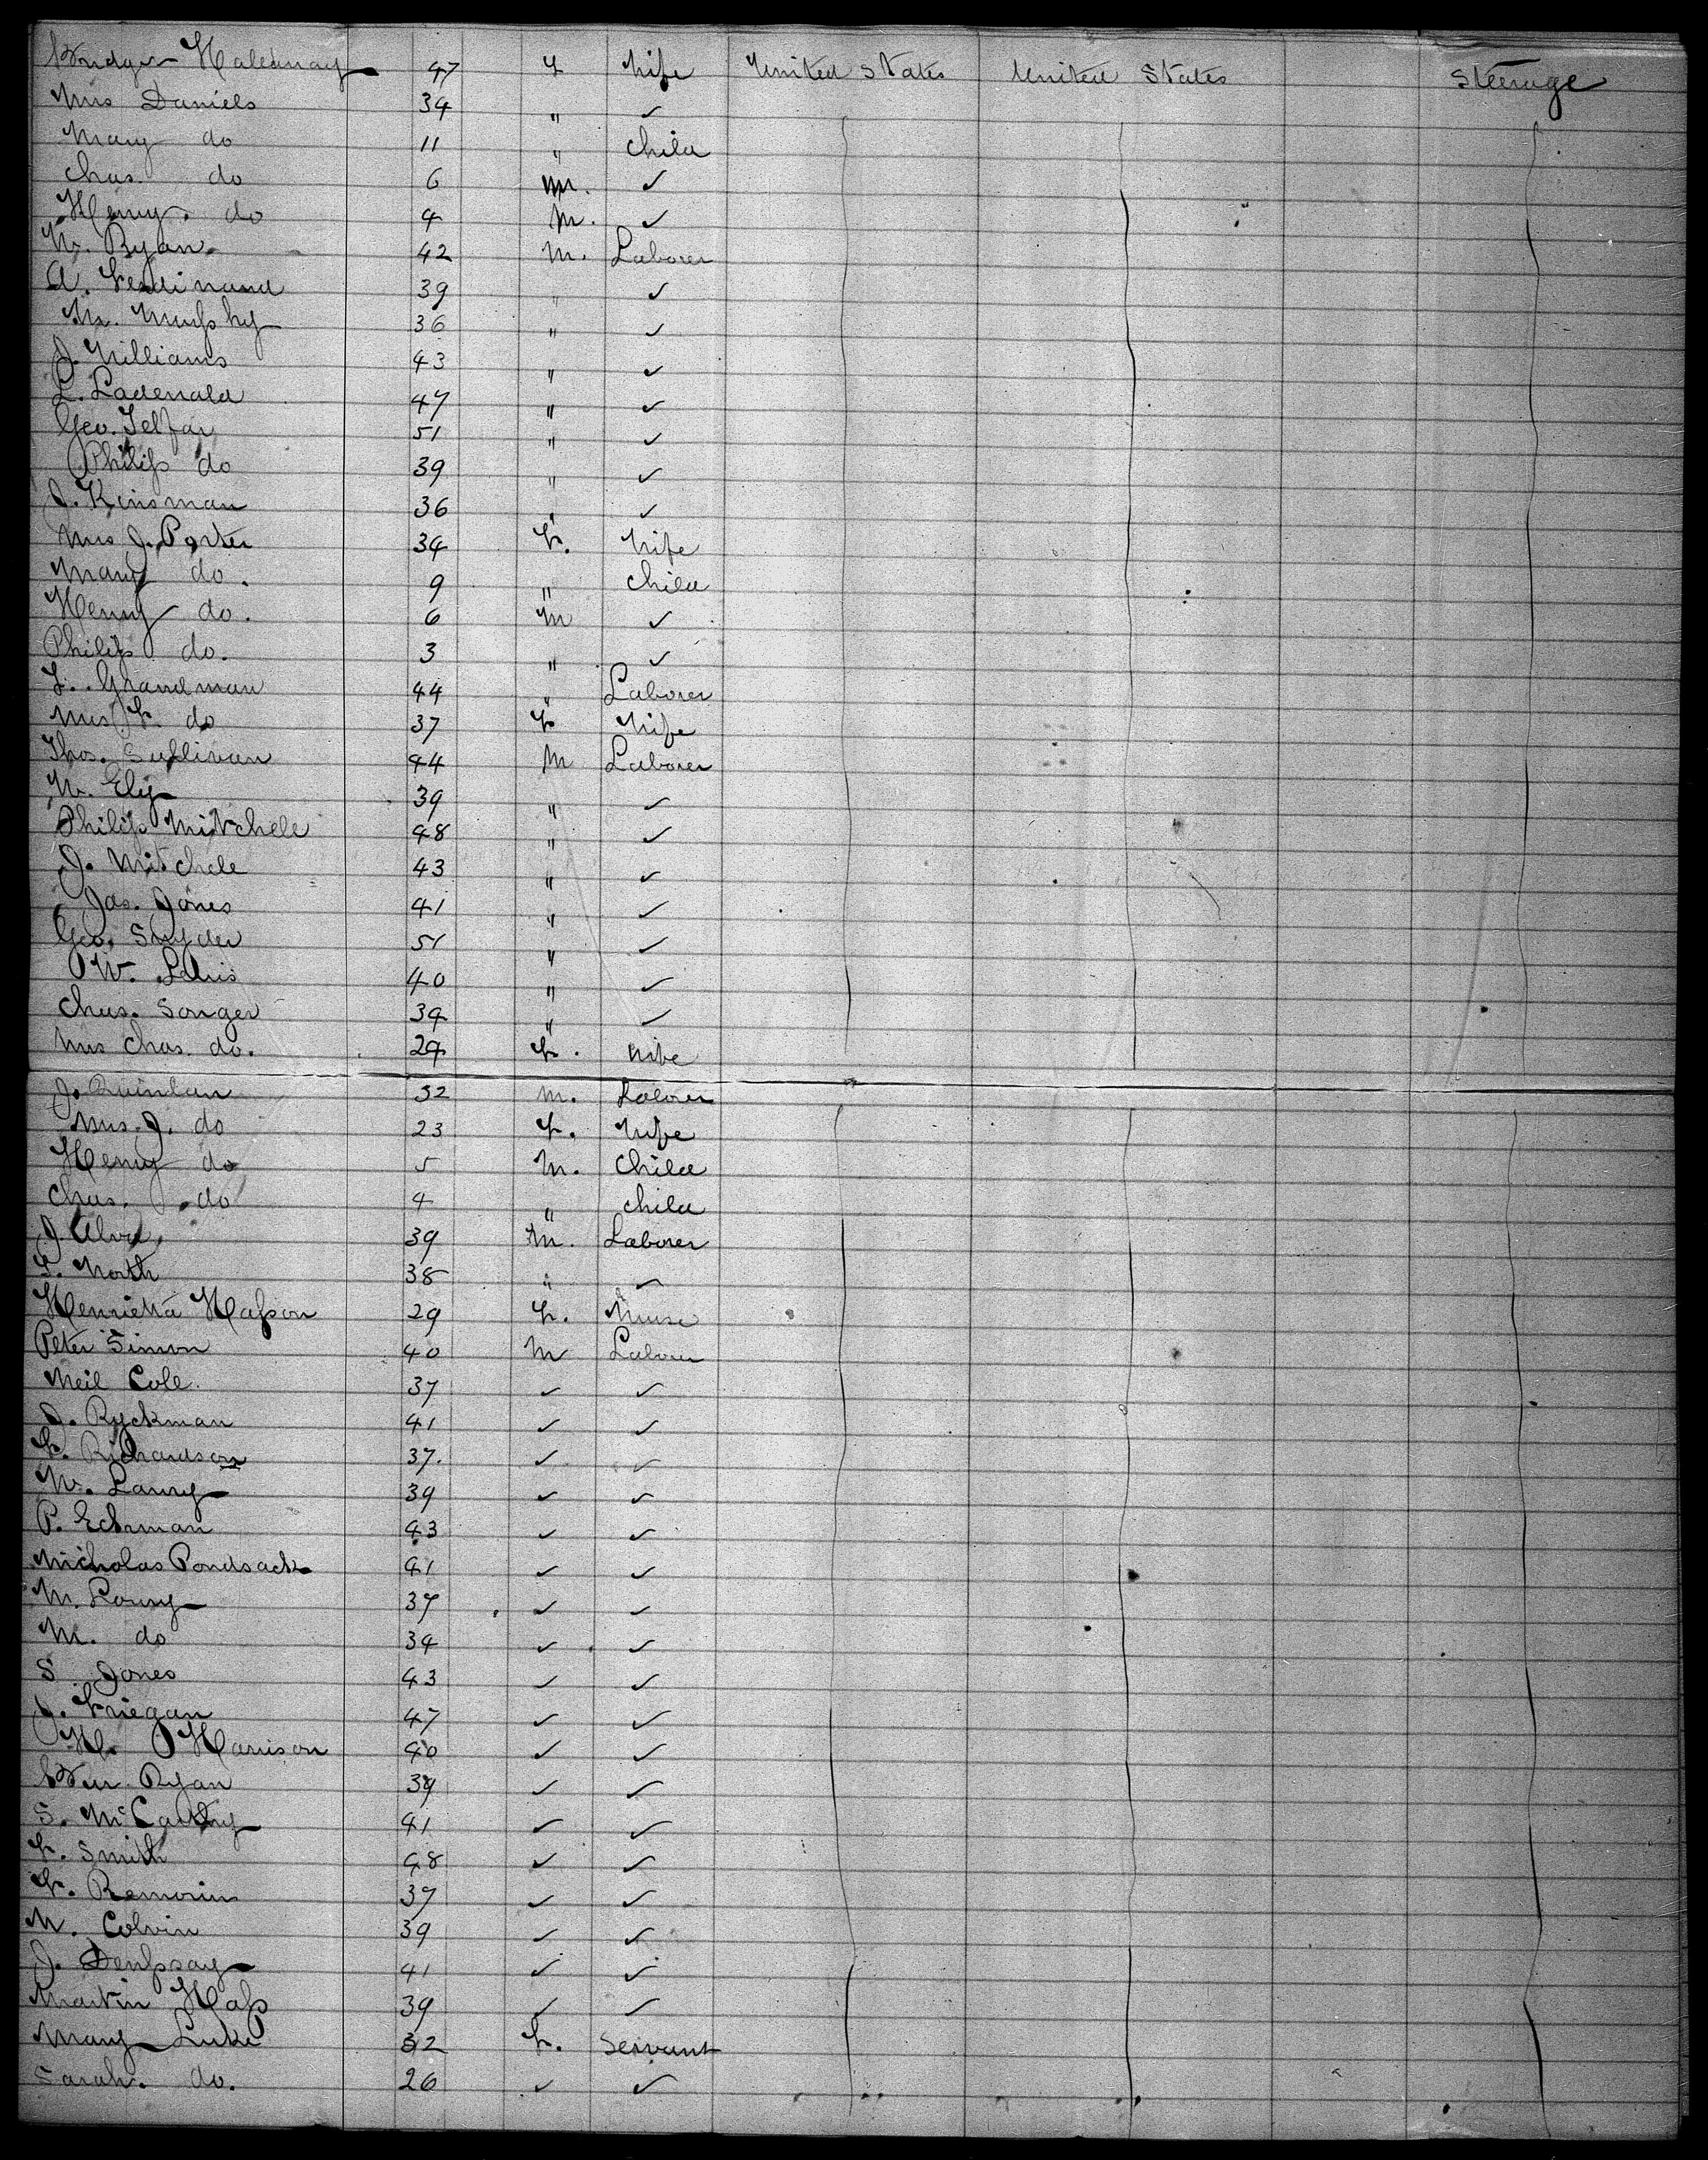 47 F Wife United States United States Steerage
Mrs Daniels 34 " ✓
Mary do 11 " Child
Chas. do 6 M. ✓
Henry. do 4 M. ✓
W. Ryan. 42 M. Laborer
A. Ferdinand 39 " ✓
M. Murphy 36 " ✓
J. Williams 43 " ✓
L. Ladenald 47 " ✓
Geo. Telfar 51 " ✓
Philip do 39 " ✓
J. Kinsman 36 " ✓
Mrs J. Porter 34 F. Wife
Mary do. 9 " Child
Henry do. 6 M ✓
Philip do. 3 " ✓
F. Grandman 44 " Laborer
Mrs F. do 37 F Wife
Thos. Sullivan 44 M Laborer
W. Ely 39 " ✓
Philip Mitchele 48 " ✓
J. Mitchele 43 " ✓
Jas. Jones 41 " ✓
Geo. Snyder 51 " ✓
W. 40 " ✓
Chas. Songer 34 " ✓
Mrs Chas. do. 29 F. Wife
J. Quinlan 32 M. Laborer
Mrs. J. do 23 F. Wife
Henry do 5 M. Child
Chas. do 4 " Child
J. 39 M. Laborer
S. North 38 " ✓
Henrietta Hafson 29 F. Nurse
Peter Simon 40 M Laborer
Neil Cole. 37 ✓ ✓
J. Ryckman 41 ✓ ✓
F. Richardson 37. ✓ ✓
W. Laury 39 ✓ ✓
P. Eckman 43 ✓ ✓
Nicholas Pondsack 41 ✓ ✓
M. Loury 37 ✓ ✓
M. do 34 ✓ ✓
S Jones 43 ✓ ✓
J. Friegan 47 ✓ ✓
H. Harrison 40 ✓ ✓
Wm. Ryan 39 ✓ ✓
S. McCarthy 41 ✓ ✓
F. Smith 48 ✓ ✓
F. 37 ✓ ✓
W. Colvin 39 ✓ ✓
J. Dempsay 41 ✓ ✓
Martin Hafs 39 ✓ ✓
Mary Luke 32 F. Servant
Sarah. do. 26 ✓ ✓